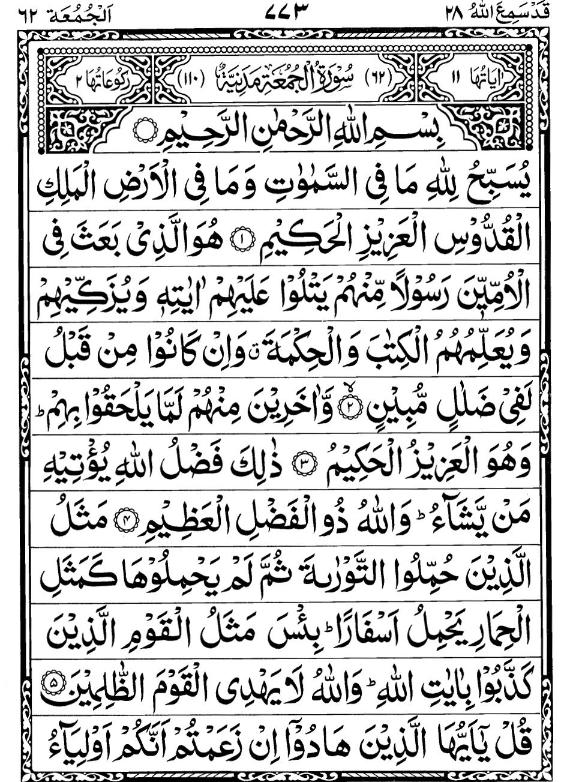 قَدْ سَمِعَ اللّٰهُ ٢٨ ٧٧٣ اَلْجُمُعَة ٦٢
اٰيَاتُهَا ١١ (٦٢) سُوْرَةُ الْجُمُعَةِ مَدَنِيَّةٌ (١١٠) رُكُوْعَاتُهَا ٢
بِسْمِ اللّٰهِ الرَّحْمٰنِ الرَّحِيْمِ
يُسَبِّحُ لِلّٰهِ مَا فِى السَّمٰوٰتِ وَمَا فِى الْاَرْضِ الْمَلِكِ
الْقُدُّوْسِ الْعَزِيْزِ الْحَكِيْمِ ١ هُوَ الَّذِىْ بَعَثَ فِى
الْاُمِّيّٖنَ رَسُوْلًا مِّنْهُمْ يَتْلُوْا عَلَيْهِمْ اٰيٰتِهٖ وَيُزَكِّيْهِمْ
وَيُعَلِّمُهُمُ الْكِتٰبَ وَالْحِكْمَةَ ۤ وَاِنْ كَانُوْا مِنْ قَبْلُ
لَفِىْ ضَلٰلٍ مُّبِيْنٍ ۙ ٢ وَّاٰخَرِيْنَ مِنْهُمْ لَمَّا يَلْحَقُوْا بِهِمْ ؕ
وَهُوَ الْعَزِيْزُ الْحَكِيْمُ ٣ ذٰلِكَ فَضْلُ اللّٰهِ يُؤْتِيْهِ
مَنْ يَّشَآءُ ؕ وَاللّٰهُ ذُو الْفَضْلِ الْعَظِيْمِ ٤ مَثَلُ
الَّذِيْنَ حُمِّلُوا التَّوْرٰىةَ ثُمَّ لَمْ يَحْمِلُوْهَا كَمَثَلِ
الْحِمَارِ يَحْمِلُ اَسْفَارًا ؕ بِئْسَ مَثَلُ الْقَوْمِ الَّذِيْنَ
كَذَّبُوْا بِاٰيٰتِ اللّٰهِ ؕ وَاللّٰهُ لَا يَهْدِى الْقَوْمَ الظّٰلِمِيْنَ ٥
قُلْ يٰۤاَيُّهَا الَّذِيْنَ هَادُوْۤا اِنْ زَعَمْتُمْ اَنَّكُمْ اَوْلِيَآءُ